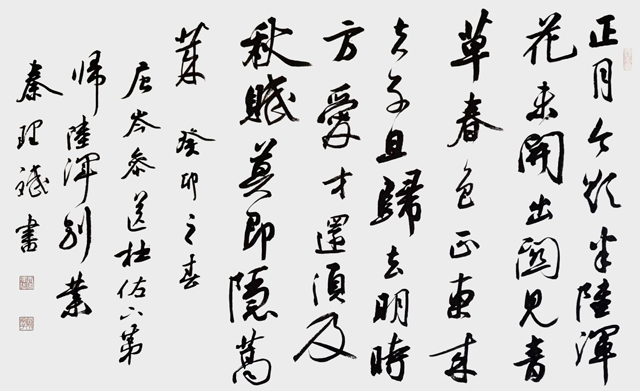 正月今欲半陸渾
花未開出關見青
草春色正東來
夫子且歸去明時
方愛才還須及
秋賦莫即隱蒿
萊 癸卯之春
唐岑參送杜佐下第
帰陸渾別業
秦理斌書